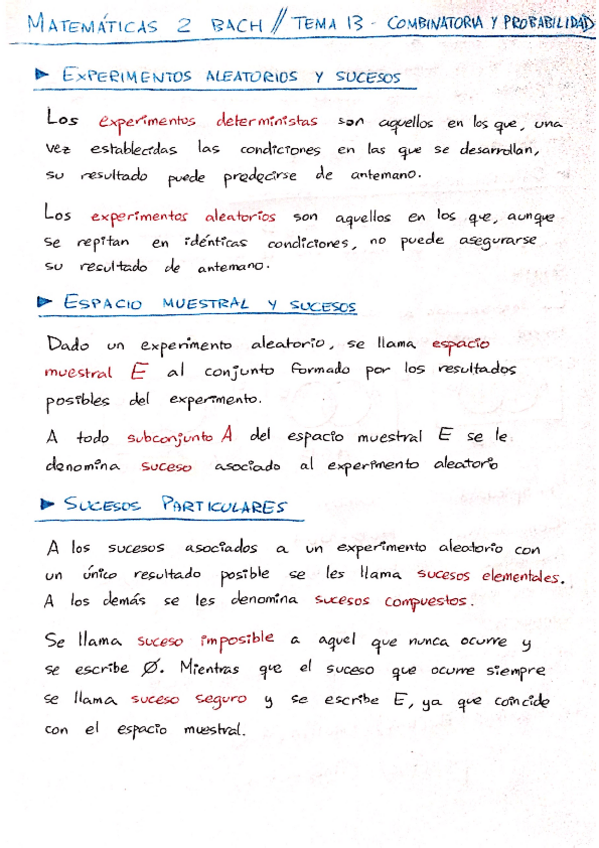 MATEMÁTICAS 2 BACH // TEMA 13 - COMBINATORIA Y PROBABILIDAD
► EXPERIMENTOS ALEATORIOS Y SUCESOS
Los experimentos deterministas son aquellos en los que, una
vez establecidas las condiciones en las que se desarrollan,
su resultado puede predecirse de antemano.
Los experimentos aleatorios son aquellos en los que, aunque
se repitan en idénticas condiciones, no puede asegurarse
su resultado de antemano.
► ESPACIO MUESTRAL Y SUCESOS
Dado un experimento aleatorio, se llama espacio
muestral E al conjunto formado por los resultados
posibles del experimento.
A todo subconjunto A del espacio muestral E se le
denomina suceso asociado al experimento aleatorio
► SUCESOS PARTICULARES
A los sucesos asociados a un experimento aleatorio con
un único resultado posible se les llama sucesos elementales.
A los demás se les denomina sucesos compuestos.
Se llama suceso imposible a aquel que nunca ocurre y
se escribe Ø. Mientras que el suceso que ocurre siempre
se llama suceso seguro y se escribe E, ya que coincide
con el espacio muestral.